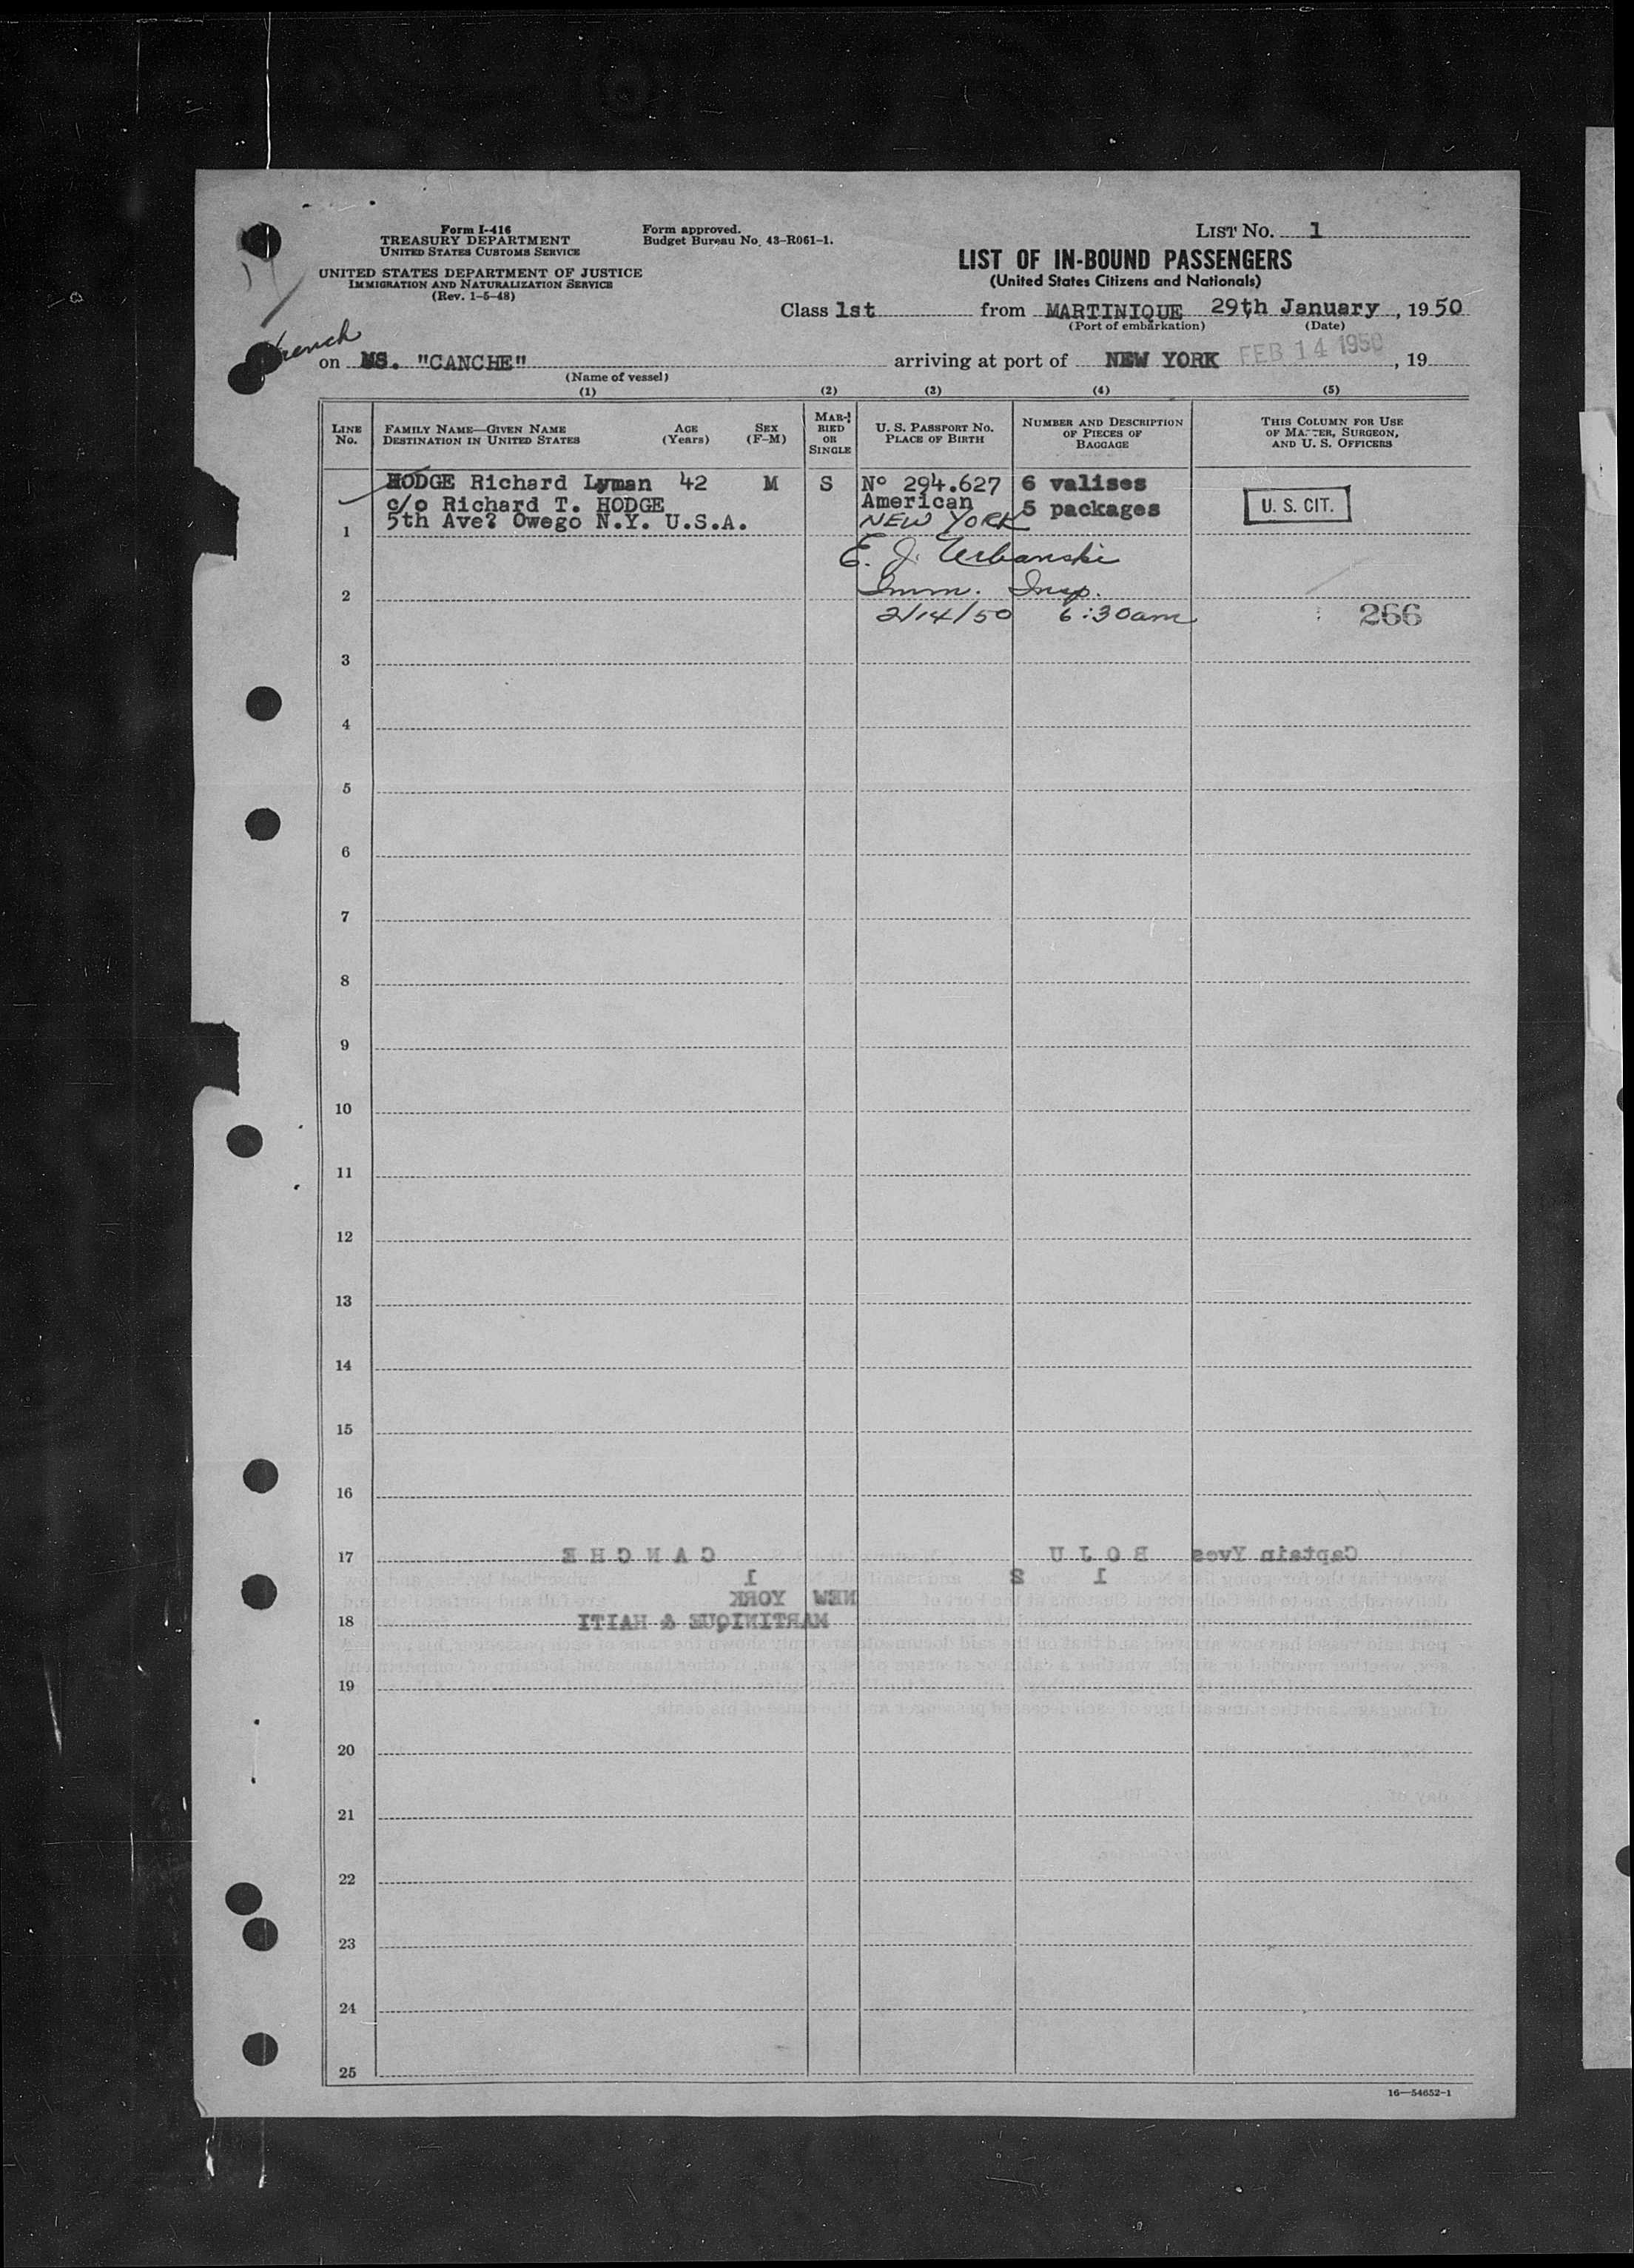 Form I-416
TREASURY DEPARTMENT
UNITED STATES CUSTOMS SERVICE
UNITED STATES DEPARTMENT OF JUSTICE
IMMIGRATION AND NATURALIZATION SERVICE
(Rev. 1-5-48)
Form approved.
Budget Bureau No. 43-R061-1.
LIST No. 1
LIST OF IN-BOUND PASSENGERS
(United States Citizens and Nationals)
Class 1st from MARTINIQUE 29th January, 1950
(Port of embarkation) (Date)
French
on MS. "CANCHE" arriving at port of NEW YORK FEB 14 1950, 19
(Name of vessel)
(1) (2) (3) (4) (5)
LINE No. FAMILY NAME—GIVEN NAME DESTINATION IN UNITED STATES AGE (Years) SEX (F-M) MARRIED OR SINGLE U. S. PASSPORT NO. PLACE OF BIRTH NUMBER AND DESCRIPTION OF PIECES OF BAGGAGE THIS COLUMN FOR USE OF MASTER, SURGEON, AND U. S. OFFICERS
HODGE Richard Lyman 42 M S N° 294.627 6 valises
c/o Richard T. HODGE American 5 packages U. S. CIT.
1 5th Ave? Owego N.Y. U.S.A. NEW YORK
E. J. Urbanski
2 Imm. Insp.
2/14/50 6:30am 266
3
4
5
6
7
8
9
10
11
12
13
14
15
16
17 Captain Yves BOJU CANCHE
1 2 1
NEW YORK
18 MARTINIQUE & HAITI
19
of baggage, and the name and age of each deceased passenger and the cause of his death.
20
day of
21
22
23
24
25
16—54652-1